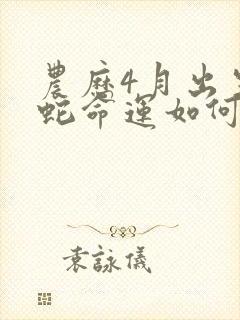 農歷4月出生
蛇命運如何
袁詠儀